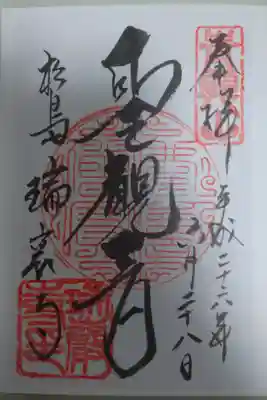 奉拝
平成二十六年
六月二十八日
聖観音
松島 瑞巖寺